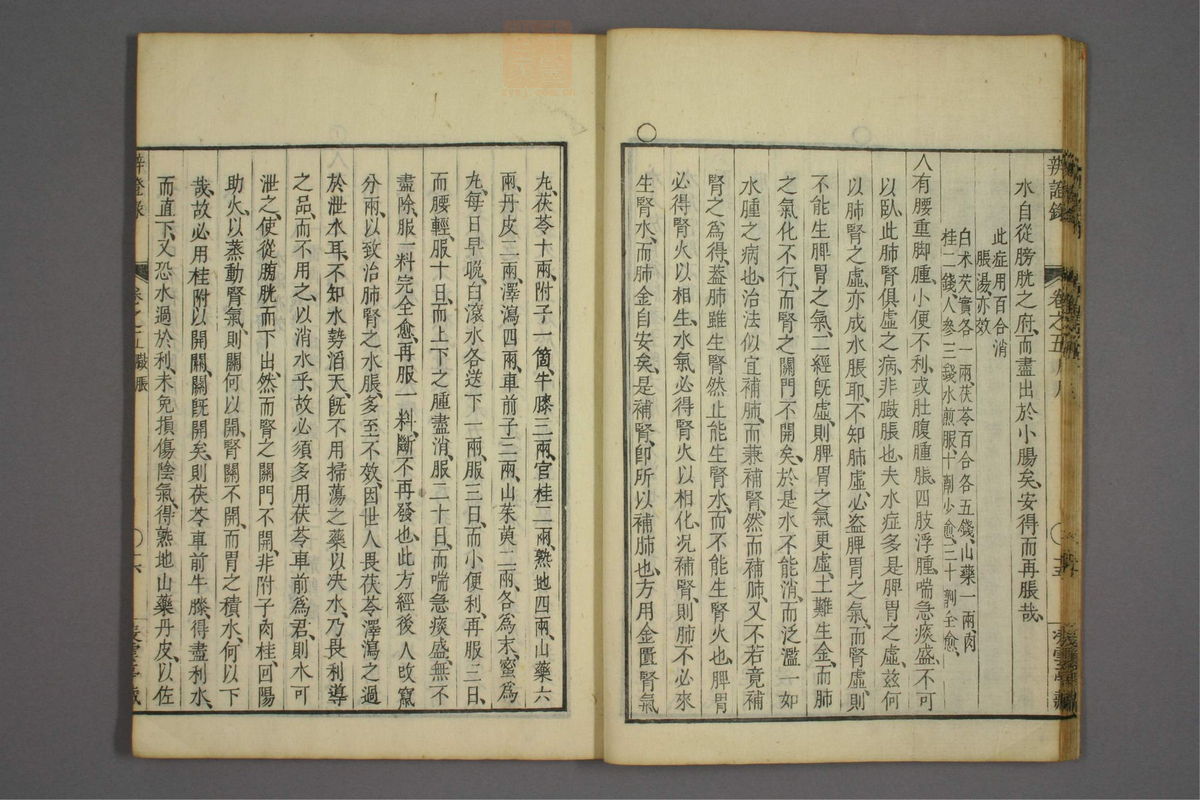 辨證錄
卷之五
水自從膀胱之府、而盡出於小腸矣、安得而再脹哉、
此症用百合消
脹湯亦效
白术芡實各一兩茯苓百合各五錢、山藥一兩肉
桂二錢人參三錢水煎服、十劑少愈、二十劑全愈、
人有腰重脚腫、小便不利、或肚腹腫脹、四肢浮腫喘急痰盛、不可
以臥、此肺腎俱虛之病、非臌脹也、夫水症多是脾胃之虛、茲何
以肺腎之虛、亦成水脹耶、不知肺虛必盜脾胃之氣、而腎虛則
不能生脾胃之氣、二經既虛、則脾胃之氣更虛、土難生金、而肺
之氣化不行、而腎之關門不開矣、於是水不能消、而泛濫一如
水腫之病也、治法似宜補肺、而兼補腎、然而補肺、又不若竟補
腎之為得、蓋肺雖生腎、然止能生腎水、而不能生腎火也、脾胃
必得腎火以相生、水氣必得腎火以相化、况補腎、則肺不必來
生腎水、而肺金自安矣、是補腎卽所以補肺也、方用金匱腎氣
丸、茯苓十兩、附子一箇、牛膝三兩、官桂二兩、熟地四兩、山藥六
兩、丹皮二兩、澤瀉四兩、車前子三兩、山茱萸二兩、各爲末、蜜爲
丸、每日早晚、白滾水各送下一兩、服三日、而小便利、再服三日、
而腰輕、服十日、而上下之腫盡消、服二十日、而喘急痰盛、無不
盡除、服一料完全愈、再服一料、斷不再發也、此方經後人改竄
分兩、以致治肺腎之水脹、多至不效、因世人畏茯苓澤瀉之過
於泄水耳、不知水勢滔天、旣不用掃蕩之藥以決水、乃畏利導
之品、而不用之、以消水乎、故必須多用茯苓車前爲君、則水可
泄之、使從膀胱而下出、然而腎之關門不開、非附子肉桂、回陽
助火、以蒸動腎氣、則關何以開、腎關不開、而胃之積水、何以下
哉、故必用桂附以開關、關旣開矣、則茯苓車前牛膝、得盡利水、
而直下、又恐水過於利、未免損傷陰氣、得熟地山藥丹皮、以佐
卷之五臌脹